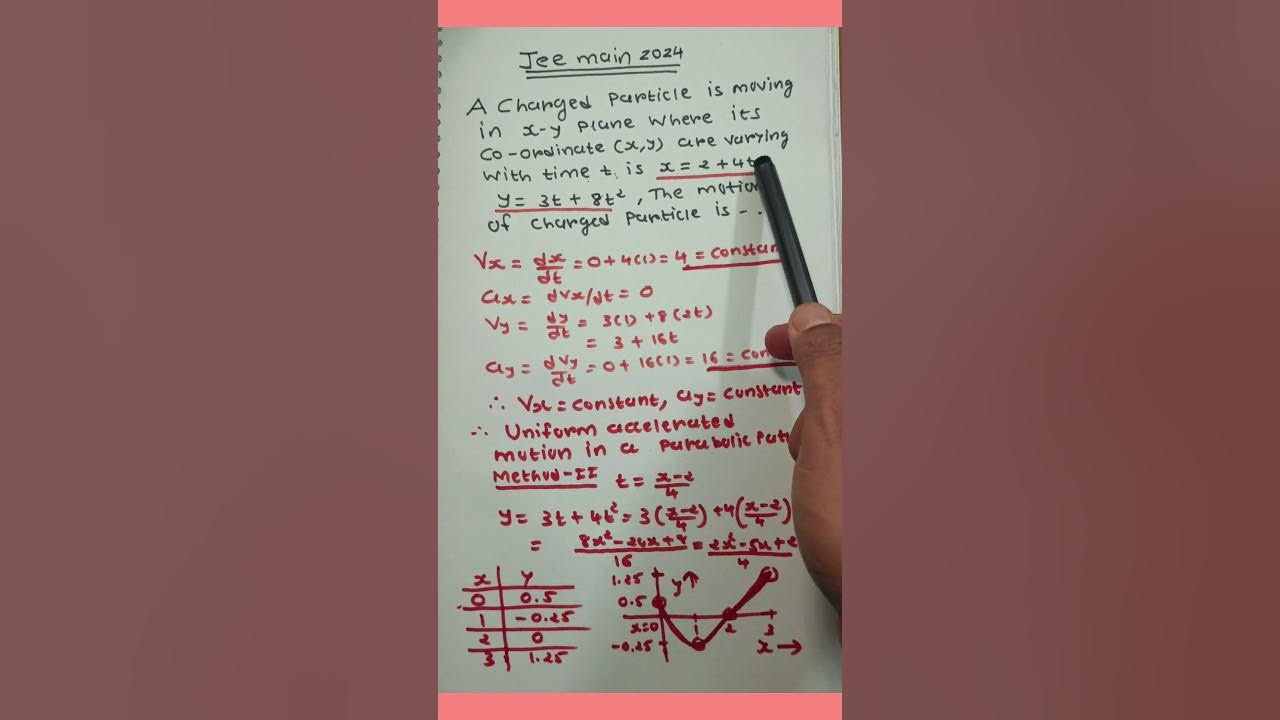 Jee main 2024
A Charged Particle is moving
in x-y Plane Where its
Co-ordinate (x,y) are varying
With time t. is x = 2 + 4t
y = 3t + 8t², The motion
of Charged Particle is - .
Vx = dx/dt = 0 + 4(1) = 4 = constan
ax = dVx/dt = 0
Vy = dy/dt = 3(1) + 8(2t)
= 3 + 16t
ay = dVy/dt = 0 + 16(1) = 16 = con
∴ Vx = constant, ay = constant
∴ Uniform accelerated
motion in a Parabolic Pat
Method-II t = x-2/4
y = 3t + 4t² = 3(x-2/4) + 4(x-2/4)
= 8x² - 24x + 8/16 = 2x² - 5x + 2/4
x y
0 0.5
1 -0.25
2 0
3 1.25
1.25 y↑
0.5
x=0 1 2 3
-0.25 x →